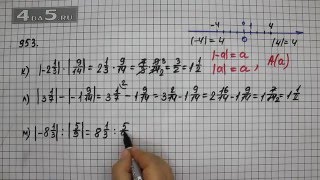 4ds.ru
953.
-4 0 4
|-4|=4 |4|=4
|-a|=a
|a|=a A(a)
к) |-2 1/3| · |9/14| = 2 1/3 · 9/14 = 7/3 · 9/14 = 3/2 = 1 1/2
л) |3 1/7| - |-1 9/14| = 3 1/7 - 1 9/14 = 3 2/14 - 1 9/14 = 2 16/14 - 1 9/14 = 1 7/14 = 1 1/2
м) |-8 1/3| : |5/9| = 8 1/3 : 5